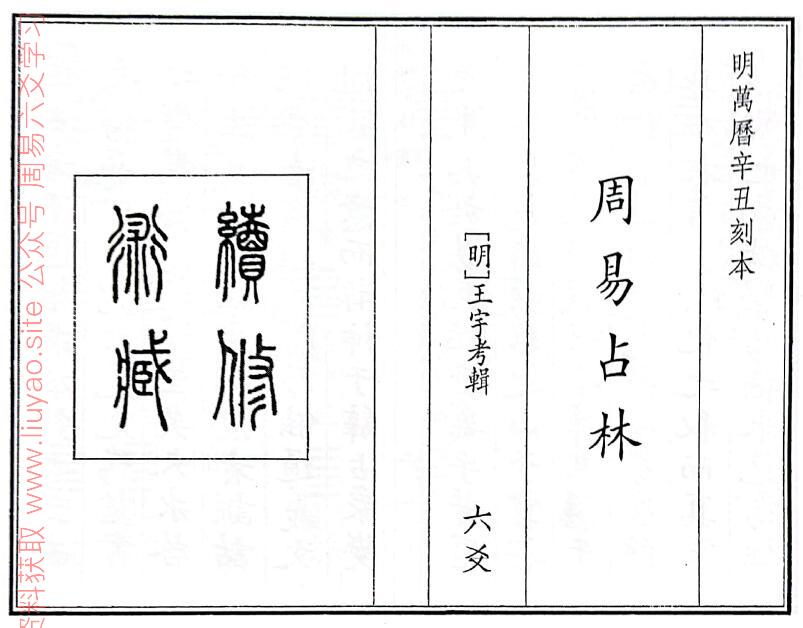 明萬曆辛丑刻本
周易占林
[明]王宇考輯
六爻
續修
術藏
资料获取 www.liuyao.site 公众号 周易六爻学习